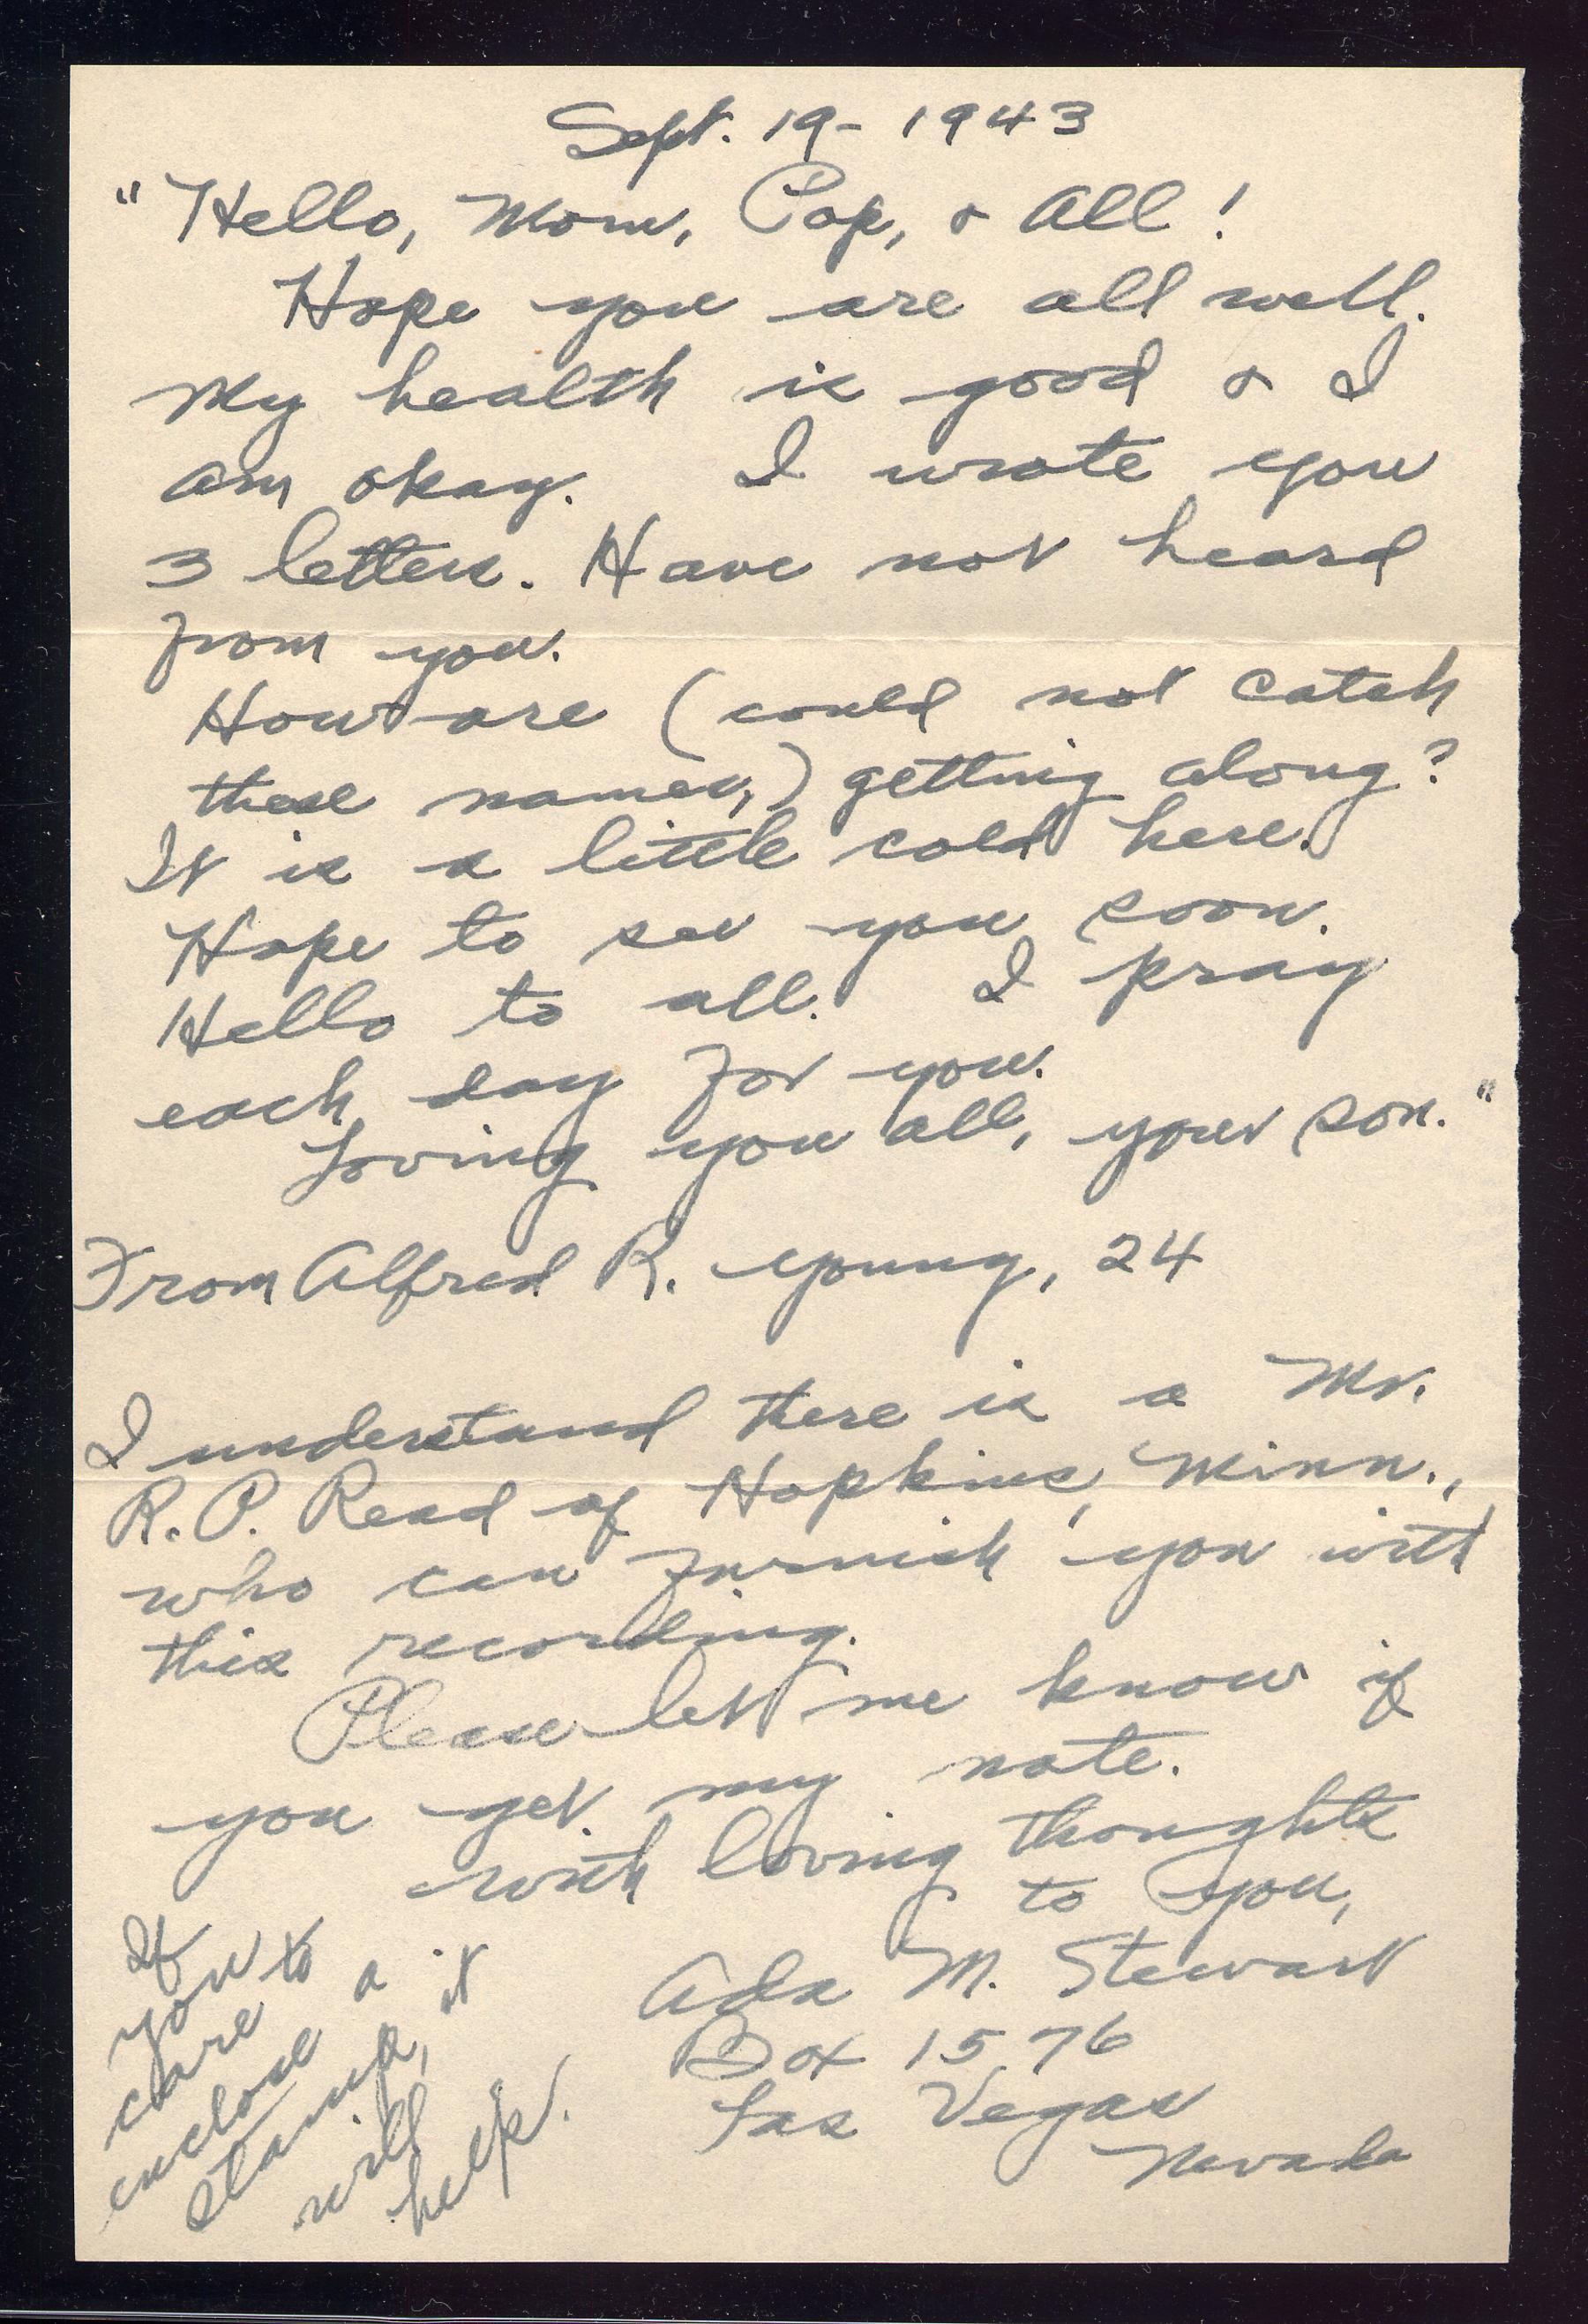 Sept. 19 - 1943
"Hello, Mom, Pop, & All!
Hope you are all well.
My health is good & I
am okay. I wrote you
3 letters. Have not heard
from you.
How are (could not catch
these names,) getting along?
It is a little cold here.
Hope to see you soon.
Hello to all. I pray
each day for you.
Loving you all, your son."
From Alfred R. Young, 24
I understand there is a Mr.
R. P. Read of Hopkins, Minn.,
who can furnish you with
this recording.
Please let me know if
you get my note.
With loving thoughts
to you,
Ada M. Stewart
Box 1576
Las Vegas
Nevada
If
you
care to
enclose a
stamp, it
will
help.